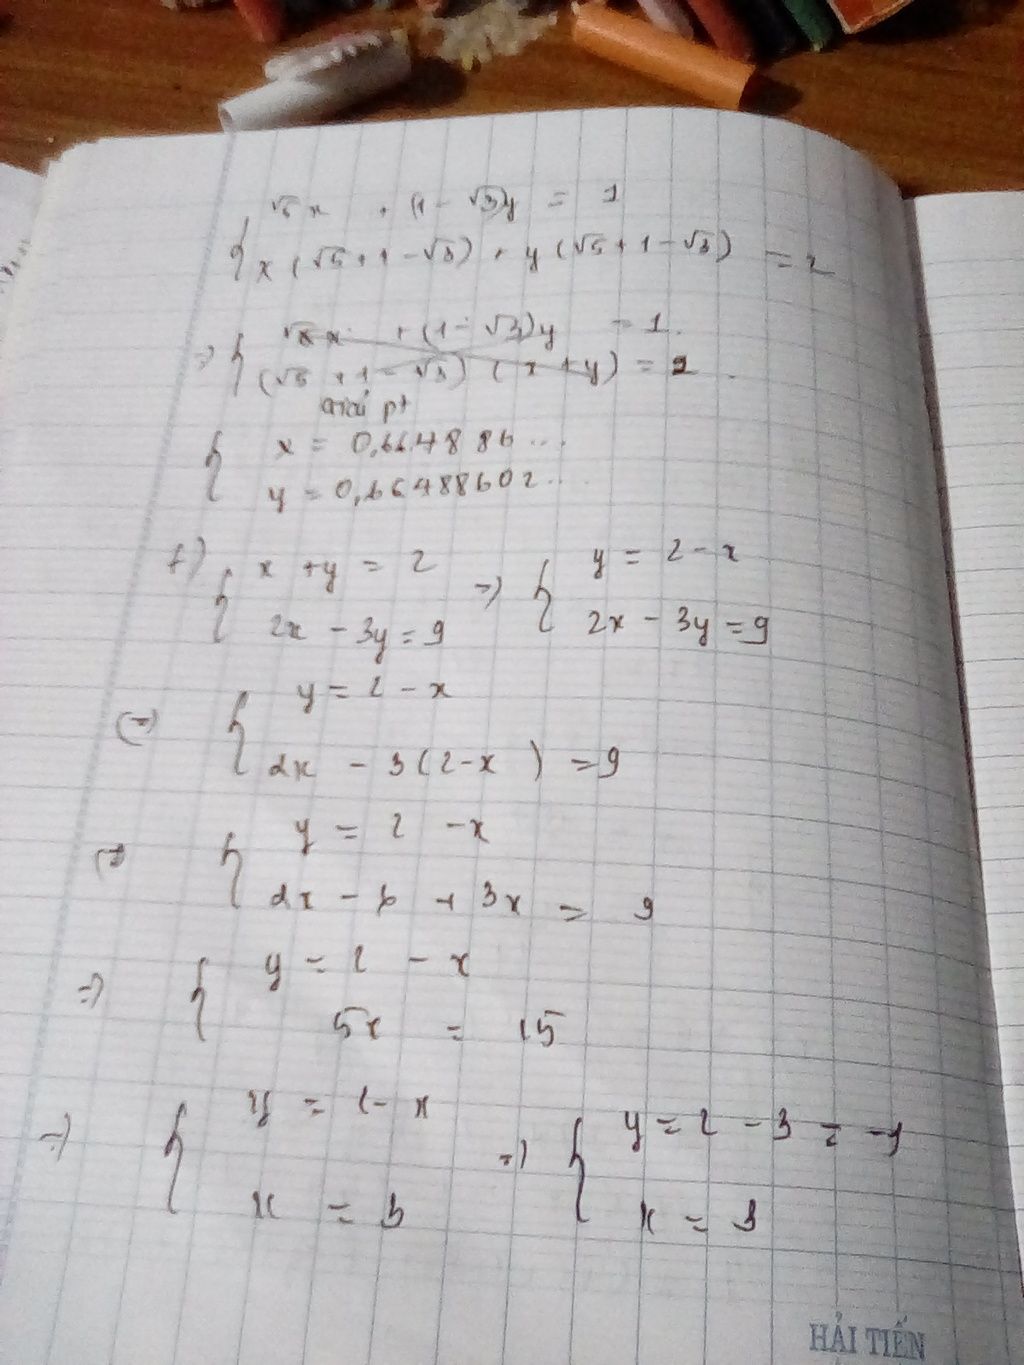 √5x + (1 - √3)y = 1
x(√5 + 1 - √3) + y(√5 + 1 - √3) = 2
=> √5x + (1 - √3)y = 1.
(√5 + 1 - √3) (x + y) = 2.
Giải pt
x = 0,664886...
y = 0,66488602...
f) x + y = 2 => y = 2 - x
2x - 3y = 9 2x - 3y = 9
(=) y = 2 - x
2x - 3(2 - x) = 9
(=) y = 2 - x
2x - 6 + 3x = 9
=> y = 2 - x
5x = 15
=> y = 2 - x => y = 2 - 3 = -1
x = 3 x = 3
HẢI TIẾN